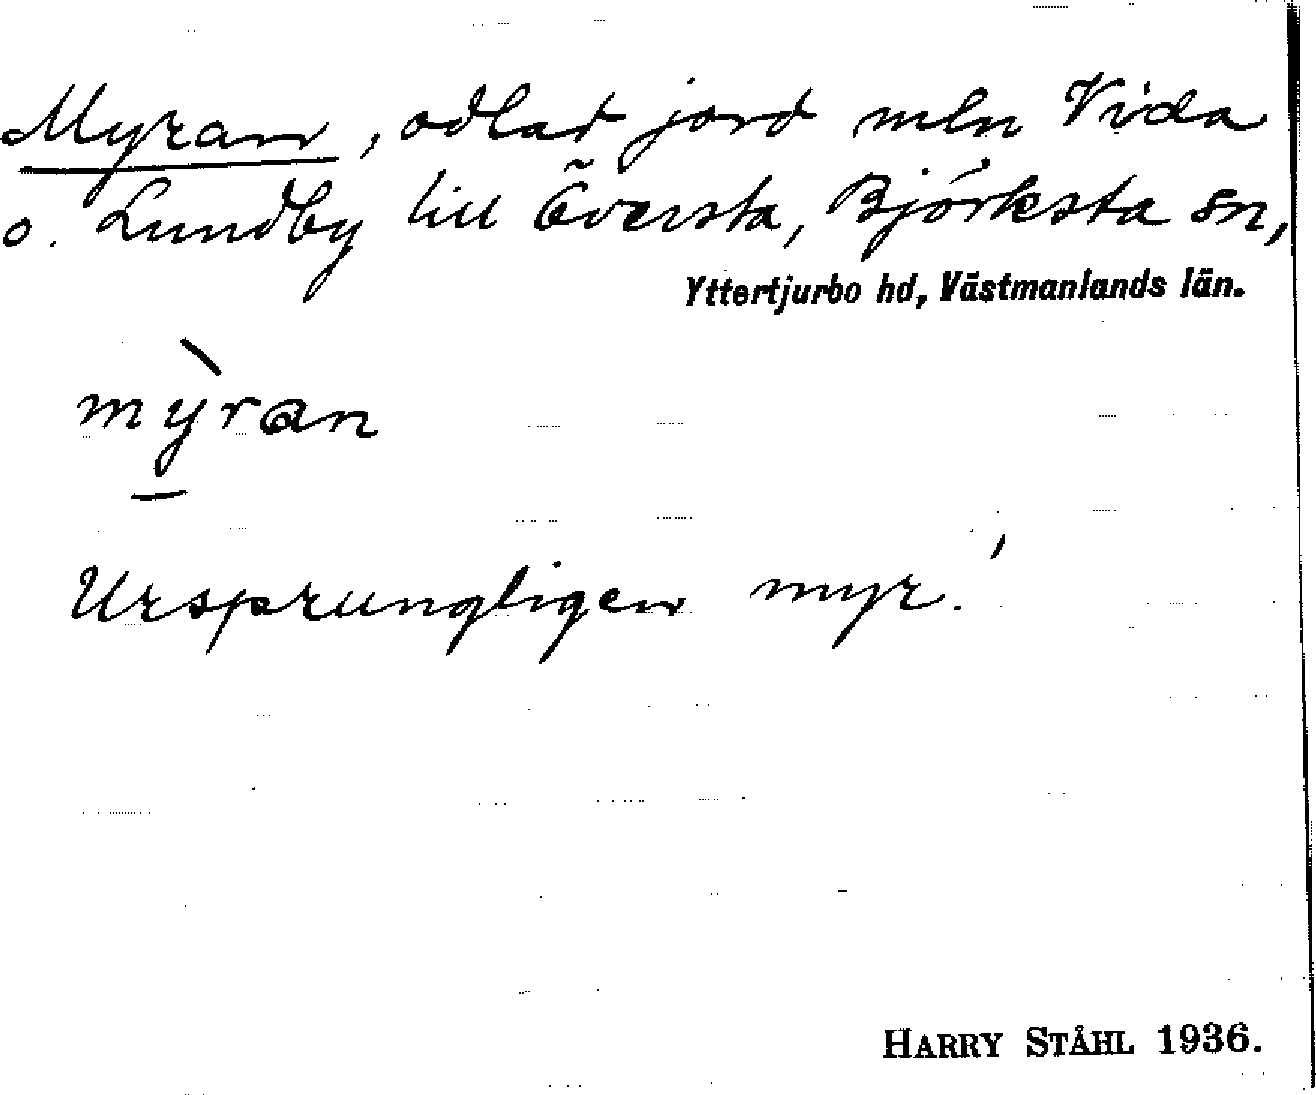 Myran, odlat jord mln Vida
o. Lundby till Översta, Björksta sn,
Yttertjurbo hd, Västmanlands län.
mỳran
Ursprungligen myr.
HARRY STÅHL 1936.